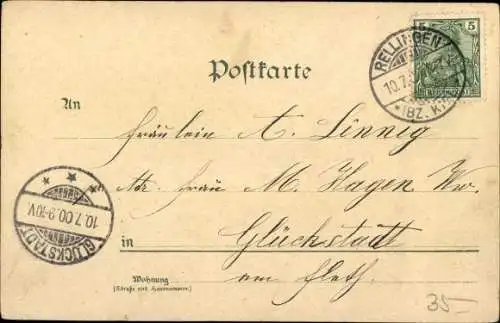 5
RELLINGEN
10.7.
*(BZ. K
Postkarte
An
Fräulein A. Linnig
Adr. Frau M. Hagen Ww.
in Glückstadt
am Fleth.
10.7.00.9-10V
GLÜCKSTADT
Wohnung
(Straße und Hausnummer.)
35